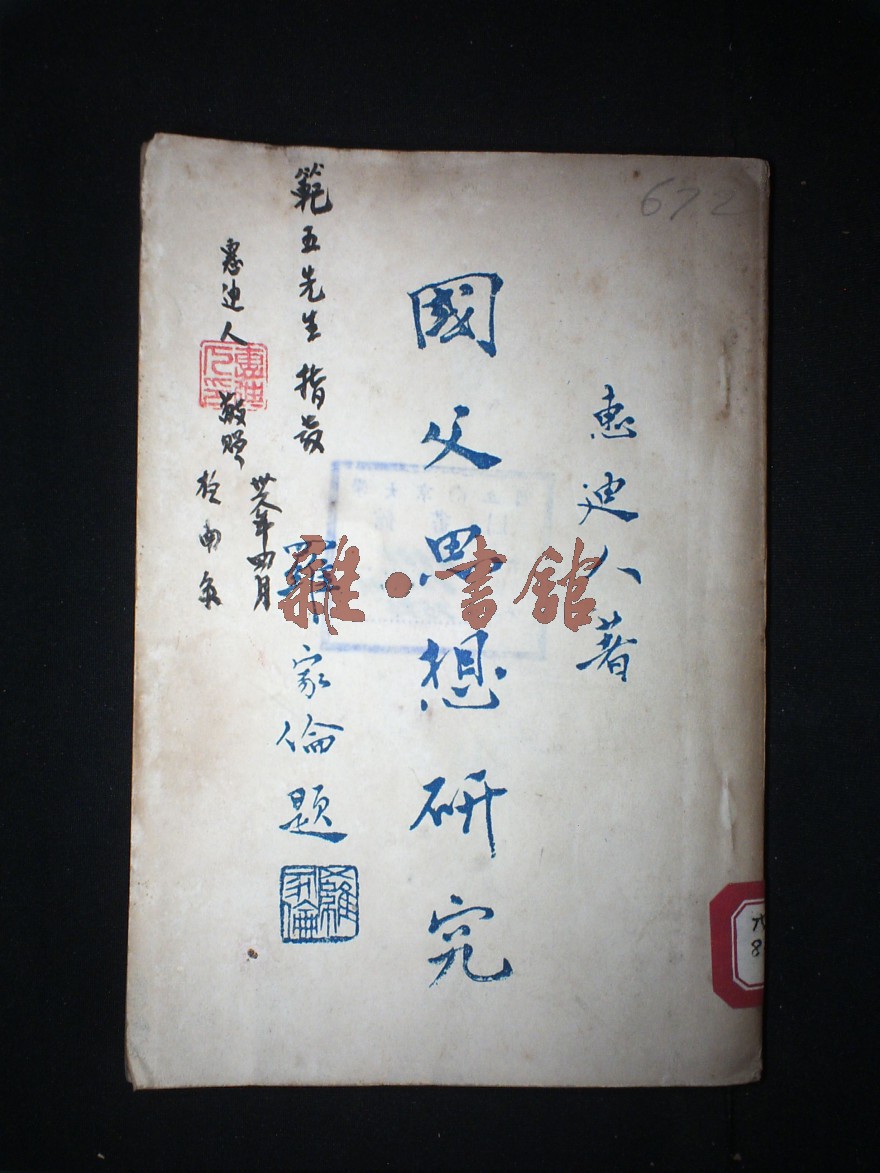 672
惠迪人著
國父思想研究
羅家倫題
羅家倫
範五先生指疵
惠迪人
敬贈
卅八年四月
於南京
雜·書舘